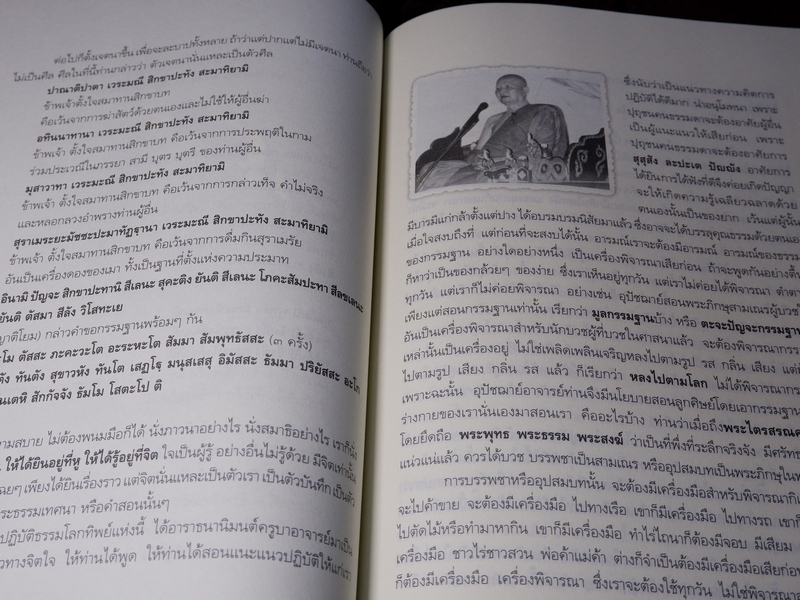 ต่อไปก็ตั้งเจตนาขึ้น เพื่อจะละบาปทั้งหลาย ถ้าว่าแต่ปากแต่ไม่มีเจตนา ท่านถือว่า
ไม่เป็นศีล ศีลในที่นี้ท่านกล่าวว่า ตัวเจตนานั่นแหละเป็นตัวศีล
ปาณาติปาตา เวระมะณี สิกขาปะทัง สะมาทิยามิ
ข้าพเจ้าตั้งใจสมาทานสิกขาบท
คือเว้นจากการฆ่าสัตว์ด้วยตนเองและไม่ใช้ให้ผู้อื่นฆ่า
อทินนาทานา เวระมะณี สิกขาปะทัง สะมาทิยามิ
ข้าพเจ้า ตั้งใจสมาทานสิกขาบท คือเว้นจากการประพฤติในกาม
ร่วมประเวณีในภรรยา สามี บุตร บุตรี ของท่านผู้อื่น
มุสาวาทา เวระมะณี สิกขาปะทัง สะมาทิยามิ
ข้าพเจ้า ตั้งใจสมาทานสิกขาบท คือเว้นจากการกล่าวเท็จ คำไม่จริง
และหลอกลวงอำพรางท่านผู้อื่น
สุราเมระยะมัชชะปะมาทัฏฐานา เวระมะณี สิกขาปะทัง สะมาทิยามิ
ข้าพเจ้า ตั้งใจสมาทานสิกขาบท คือเว้นจากการดื่มกินสุราเมรัย
อันเป็นเครื่องดองของเมา ทั้งเป็นฐานที่ตั้งแห่งความประมาท
อิมานิ ปัญจะ สิกขาปะทานิ สีเลนะ สุคะติง ยันติ สีเลนะ โภคะสัมปะทา สีลเลนะ
ยันติ ตัสมา สีลัง วิโสทะเย
ญาติโยม) กล่าวคำขอกรรมฐานพร้อมๆ กัน
โม ตัสสะ ภะคะวะโต อะระหะโต สัมมา สัมพุทธัสสะ (๓ ครั้ง)
ทันตัง สุขาวหัง ทันโต เสฏโฐ มนุสเสสุ อิมัสสะ ธัมมา ปริยัสสะ อะโก
สักกัจจัง ธัมโม โสตะโป ติ
ามสบาย ไม่ต้องพนมมือก็ได้ นั่งภาวนาอย่างไร นั่งสมาธิอย่างไร เราก็นั่ง
ให้ได้ยินอยู่ที่หู ให้ได้รู้อยู่ที่จิต ใจเป็นผู้รู้ อย่างอื่นไม่รู้ด้วย มีจิตเท่านั้น
ฉยๆ เพียงได้ยินเรื่องราว แต่จิตนั่นแหละเป็นตัวเรา เป็นตัวบันทึก เป็นตัว
ระธรรมเทศนา หรือคำสอนนั้นๆ
ปฏิบัติธรรมโลกทิพย์แห่งนี้ ได้อาราธนานิมนต์ครูบาอาจารย์มาเป็น
วทางจิตใจ ให้ท่านได้พูด ให้ท่านได้สอนแนะแนวปฏิบัติให้แก่เรา
ซึ่งนับว่าเป็นแนวทางความคิดการ
ปฏิบัติได้ดีมาก น่าอนุโมทนา เพราะ
ปุถุชนคนธรรมดาจะต้องอาศัยผู้อื่น
เป็นผู้แนะแนวให้เสียก่อน เพราะ
ปุถุชนคนธรรมดาจะต้องอาศัยการ
สุสุสัง ละปะเต ปัญญัง อาศัยการ
ได้ยินการได้ฟังที่ดีจึงค่อยเกิดปัญญา
จะให้เกิดความรู้เฉลียวฉลาดด้วย
ตนเองนั้นเป็นของยาก เว้นแต่ผู้นั้น
มีบารมีแก่กล้าตั้งแต่ปาง ได้อบรมบรมนิสัยมาแล้ว ซึ่งอาจจะได้บรรลุคุณธรรมด้วยตนเอง
เมื่อใจสงบถึงที่ แต่ก่อนที่จะสงบได้นั้น อารมณ์เราจะต้องมีอารมณ์ อารมณ์ของธรรม
ของกรรมฐาน อย่างใดอย่างหนึ่ง เป็นเครื่องพิจารณาเสียก่อน ถ้าจะพูดกันอย่างตื้น
ก็หาว่าเป็นของกล้วยๆ ของง่าย ซึ่งเราเห็นอยู่ทุกวัน แต่เราไม่ค่อยได้พิจารณา ตำตา
ทุกวัน แต่เราก็ไม่ค่อยพิจารณา อย่างเช่น อุปัชฌาย์สอนพระภิกษุสามเณรผู้บวช
เพียงแต่สอนกรรมฐานเท่านั้น เรียกว่า มูลกรรมฐานบ้าง หรือ ตะจะปัญจะกรรมฐาน
อันเป็นเครื่องพิจารณาสำหรับนักบวชผู้ที่บวชในศาสนาแล้ว จะต้องพิจารณากรร
เหล่านั้นเป็นเครื่องอยู่ ไม่ใช่เพลิดเพลินเจริญหลงไปตาม รูป รส กลิ่น เสียง แต่ถ้
ไปตามรูป เสียง กลิ่น รส แล้ว ก็เรียกว่า หลงไปตามโลก ไม่ได้พิจารณากรร
เพราะฉะนั้น อุปัชฌาย์อาจารย์ท่านจึงมีนโยบายสอนลูกศิษย์โดยเอากรรมฐาน
ร่างกายของเรานั่นเองมาสอนเรา คืออะไรบ้าง ท่านว่าเมื่อถึงพระไตรสรณค
โดยยึดถือ พระพุทธ พระธรรม พระสงฆ์ ว่าเป็นที่พึ่งที่ระลึกจริงจัง มีศรัทธา
แน่วแน่แล้ว ควรได้บวช บรรพชาเป็นสามเณร หรืออุปสมบทเป็นพระภิกษุในพ
การบรรพชาหรืออุปสมบทนั้น จะต้องมีเครื่องมือสำหรับพิจารณากิเ
จะไปค้าขาย จะต้องมีเครื่องมือ ไปทางเรือ เขาก็มีเครื่องมือ ไปทางรถ เขาก็
ไปตัดไม้หรือทำมาหากิน เขาก็มีเครื่องมือ ทำไร่ไถนาก็ต้องมีจอบ มีเสียม
เครื่องมือ ชาวไร่ชาวสวน พ่อค้าแม่ค้า ต่างก็จำเป็นต้องมีเครื่องมือเสียก่อน
ก็ต้องมีเครื่องมือ เครื่องพิจารณา ซึ่งเราจะต้องใช้ทุกวัน ไม่ใช่พิจารณา